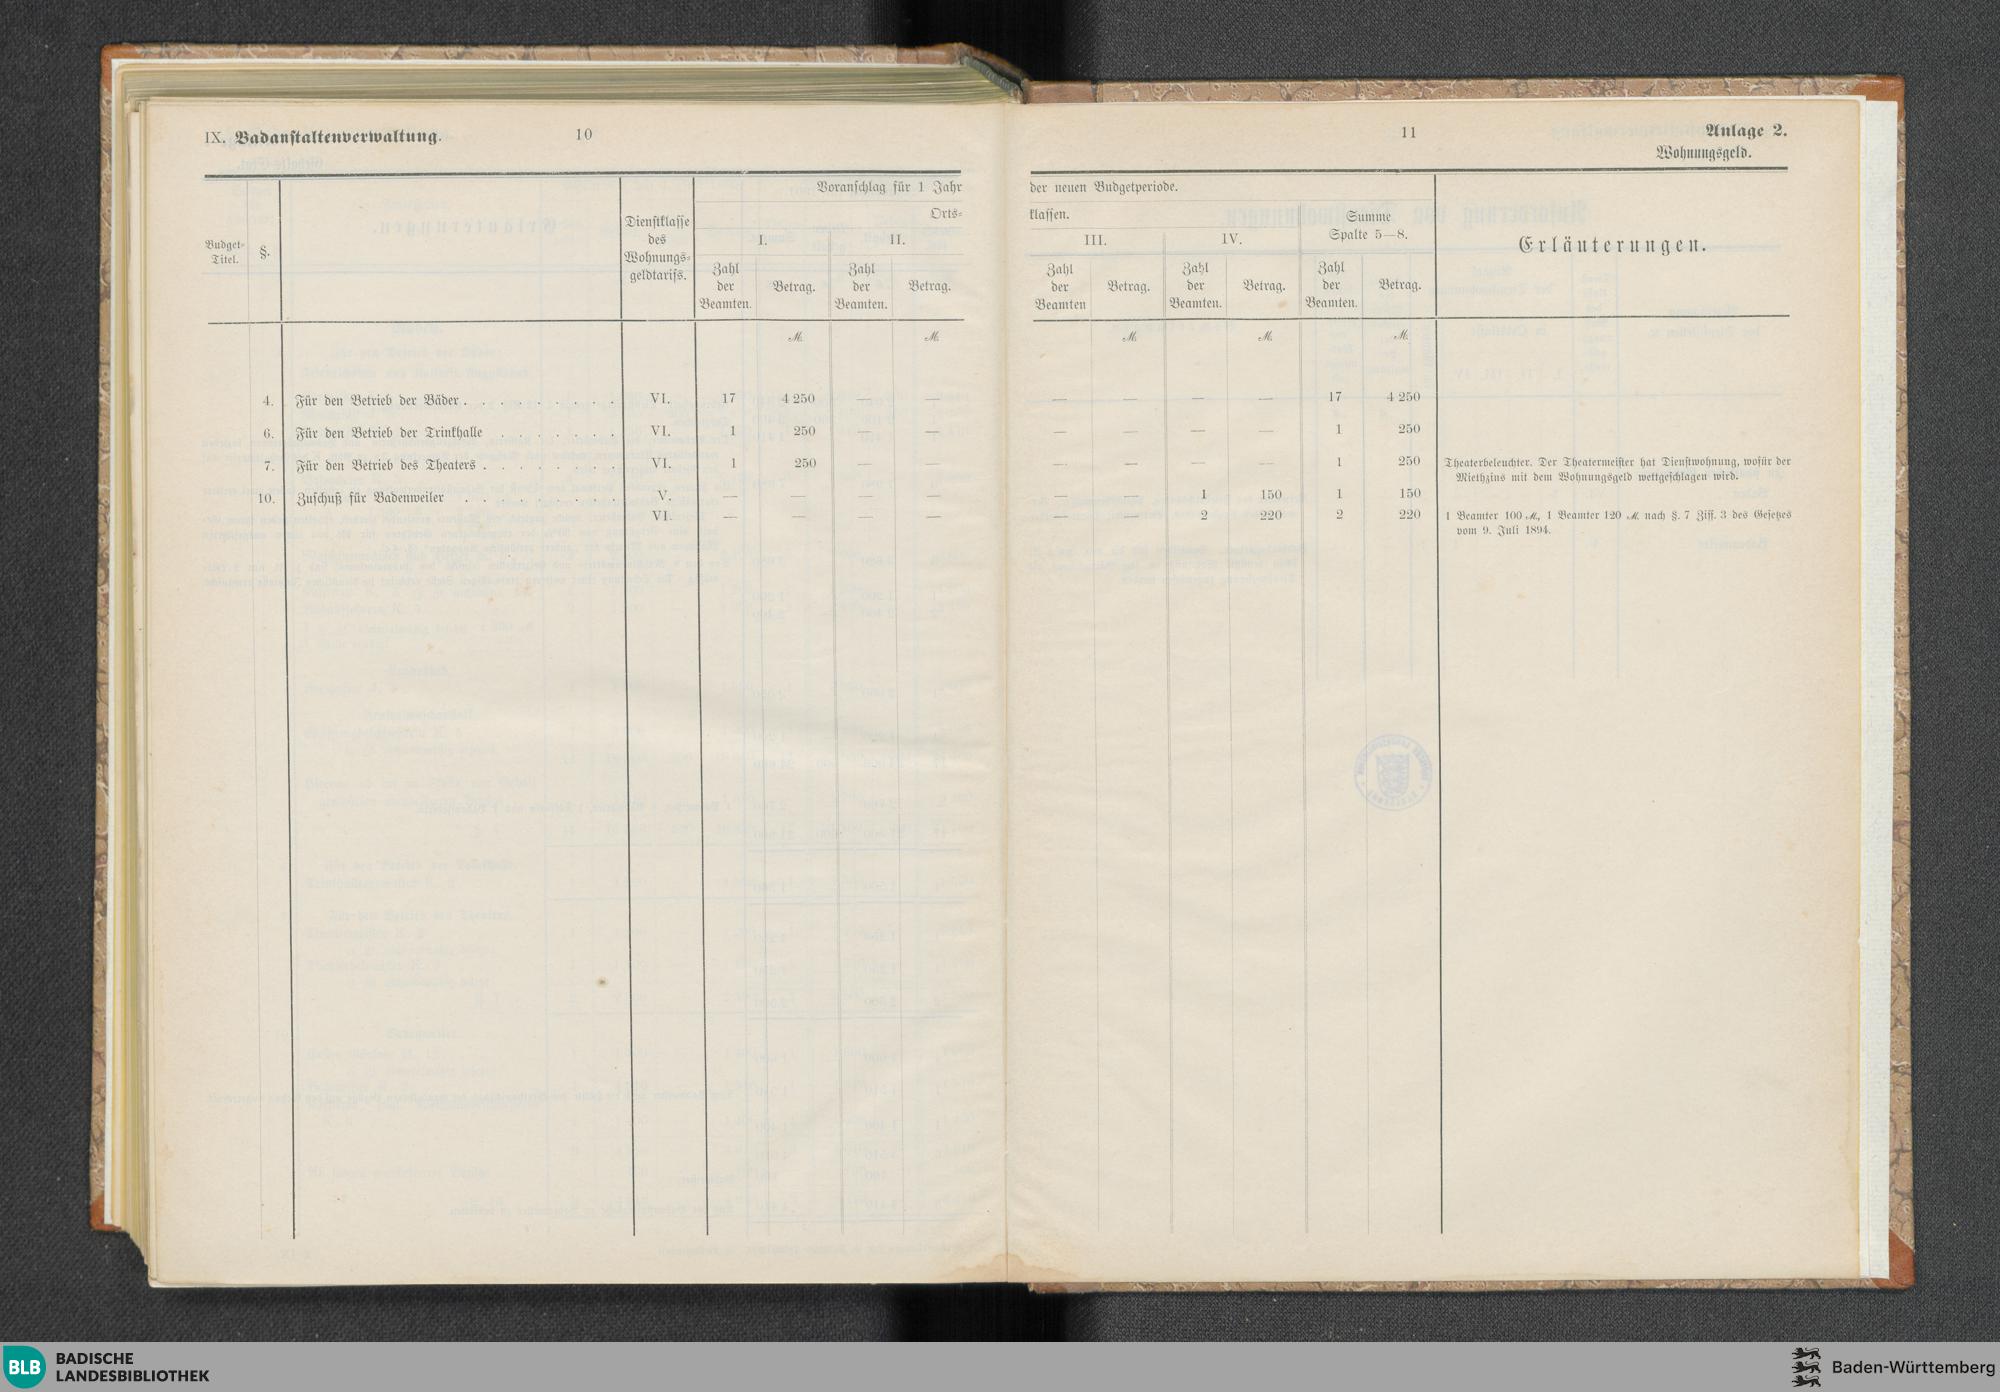 IX. Badanstaltenverwaltung.
10
Budget-
Titel.
§.
Dienstklasse
des
Wohnungs-
geldtarifs.
Voranschlag für 1 Jahr
Orts-
I.
II.
Zahl
der
Beamten.
Betrag.
Zahl
der
Beamten.
Betrag.
ℳ. ℳ.
4. Für den Betrieb der Bäder . . . . . . . . . VI. 17 4 250 — —
6. Für den Betrieb der Trinkhalle . . . . . . . VI. 1 250 — —
7. Für den Betrieb des Theaters . . . . . . . . VI. 1 250 — —
10. Zuschuß für Badenweiler . . . . . . . . . V. — — — —
VI. — — — —
11
Anlage 2.
Wohnungsgeld.
der neuen Budgetperiode.
klassen.
III.
IV.
Summe
Spalte 5—8.
Erläuterungen.
Zahl
der
Beamten
Betrag.
Zahl
der
Beamten.
Betrag.
Zahl
der
Beamten.
Betrag.
ℳ. ℳ. ℳ.
— — — — 17 4 250
— — — — 1 250
— — — — 1 250 Theaterbeleuchter. Der Theatermeister hat Dienstwohnung, wofür der
Miethzins mit dem Wohnungsgeld wettgeschlagen wird.
— — 1 150 1 150
— — 2 220 2 220 1 Beamter 100 ℳ, 1 Beamter 120 ℳ. nach §. 7 Ziff. 3 des Gesetzes
vom 9. Juli 1894.
BLB
BADISCHE
LANDESBIBLIOTHEK
Baden-Württemberg